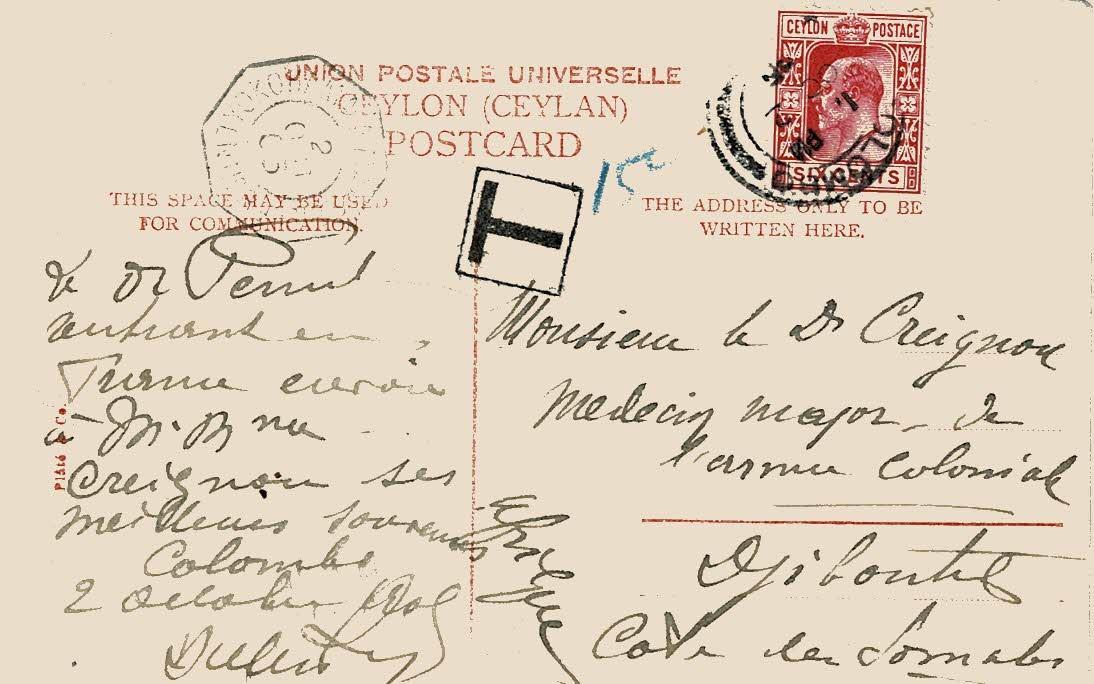 UNION POSTALE UNIVERSELLE
CEYLON (CEYLAN)
POSTCARD
CEYLON POSTAGE
SIX CENTS
COLOMBO
PM
T
15c
THIS SPACE MAY BE USED
FOR COMMUNICATION.
THE ADDRESS ONLY TO BE
WRITTEN HERE.
Le Dr
rentrant en
France envoie
à M. & Mme
Creignou ses
meilleurs souvenirs
Colombo
2 Octobre
Plâté & Co.
Monsieur le Dr Creignou
Medecin major de
l'armée Coloniale
Djibouti
Côte des Somalis
Afrique